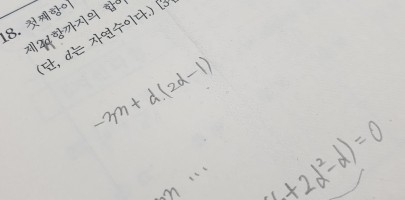 18. 첫째항이
제2d항까지의 합이
(단, d는 자연수이다.) [3
-2m + d.(2d-1)
...
+2d²-d)=0